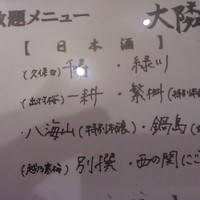 放題メニュー 大隣
【日本酒】
(久保田)千寿 ・緑川
(出羽桜)一耕 ・繁桝(特別
・八海山(特別本醸) ・鍋島(
(越乃寒梅)別撰 ・西の関にご